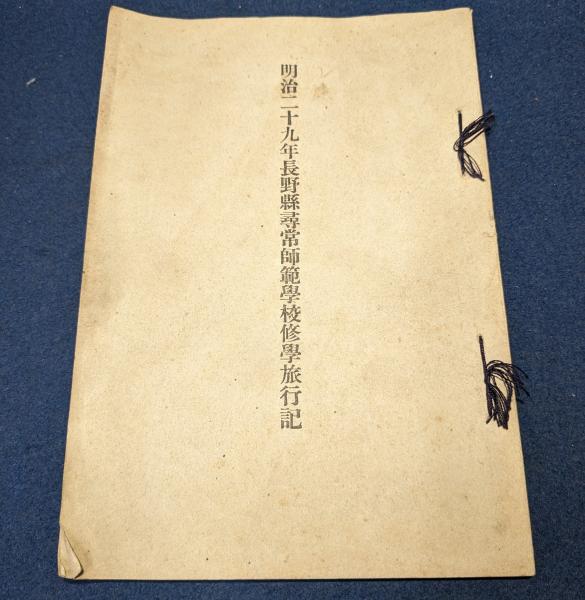 明治二十九年長野縣尋常師範學校修學旅行記